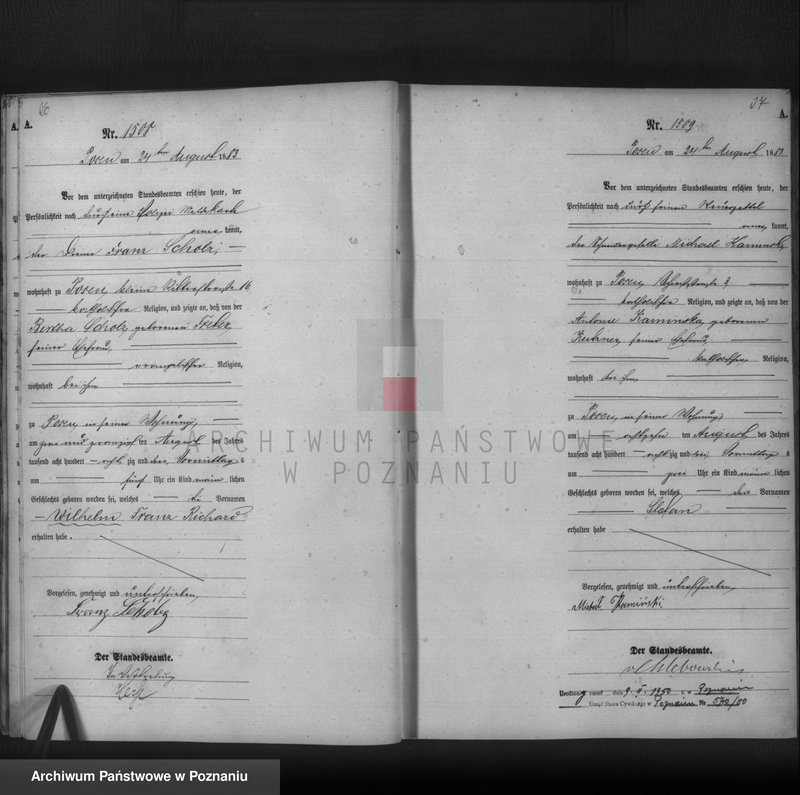 26
A.
A.
Nr. 1508
Posen am 24ten August 1883
Vor dem unterzeichneten Standesbeamten erschien heute, der
Persönlichkeit nach durch eine Polizei Meldekarte
kannt,
der Diener Franz Scholz,
wohnhaft zu Posen, kleine Ritterstraße 16
katholischer Religion, und zeigte an, daß von der
Bertha Scholz geborenen
seiner Ehefrau,
evangelischer Religion,
wohnhaft bei ihm
zu Posen, in seiner Wohnung,
am zwei und zwanzigsten August des Jahres
tausend acht hundert achtzig und drei Vormittags
um fünf Uhr ein Kind männlichen
Geschlechts geboren worden sei, welches die Vornamen
Wilhelm Franz Richard
erhalten habe.
Vorgelesen, genehmigt und unterschrieben,
Franz Scholz
Der Standesbeamte.
In Vertretung
A.
Nr. 1509
Posen am 24ten August 1883
Vor dem unterzeichneten Standesbeamten erschien heute, der
Persönlichkeit nach durch seinen Steuerzettel
kannt,
der Schneidergeselle Michael Kaminski,
wohnhaft zu Posen, 3
katholischer Religion, und zeigte an, daß von der
Antonie Kaminska, geborenen
seiner Ehefrau,
katholischer Religion,
wohnhaft bei ihm,
zu Posen, in seiner Wohnung,
am achtzehnten August des Jahres
tausend acht hundert achtzig und drei Vormittags
um zwei Uhr ein Kind männlichen
Geschlechts geboren worden sei, welches den Vornamen
Stefan
erhalten habe
Vorgelesen, genehmigt und unterschrieben,
Kamiński
Der Standesbeamte.
v. Chlebowski
dnia 9. II. 1950 r. w Poznaniu
Urząd Stanu Cywilnego w Poznaniu Nr 570/50
ARCHIWUM PAŃSTWOWE
W POZNANIU
Archiwum Państwowe w Poznaniu